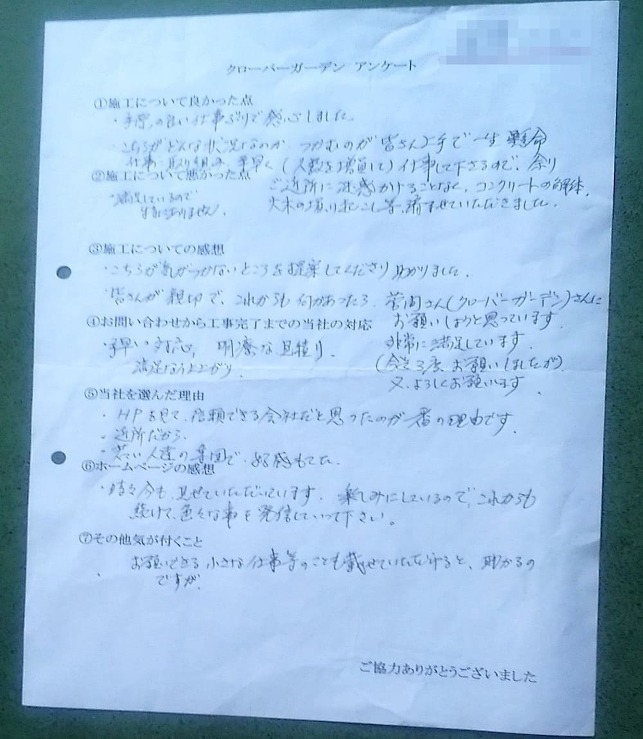 クローバーガーデン アンケート
①施工について良かった点
・手際の良い仕事ぶりで感心しました。
・こちらがどんな状況なのか つかむのが皆さん上手で一生懸命
仕事に取り組み、手早く(人数を増員して)仕事して下さるので、余り
ご近所に迷惑かけることなく、コンクリートの解体、
大木の掘り起こし等、済ませていただきました。
②施工について悪かった点
・満足しているので
特にありません。
③施工についての感想
・こちらが気がつかないところを提案してくださり助かりました。
・皆さんが親切で、これからも何かあったら、菅間さん(クローバーガーデン)さんに
お願いしようと思っています。
④お問い合わせから工事完了までの当社の対応
・手早い対応、明瞭な見積り、
満足な仕上がり、
非常に満足しています。
(今迄3度お願いしましたが)
又、よろしくお願います。
⑤当社を選んだ理由
・HPを見て、信頼できる会社だと思ったのが一番の理由です。
・近所だから、
・若い人達の集団で、好感もてた。
⑥ホームページの感想
・時々今も、見せていただいています。楽しみにしているので、これからも
続けて、色々な事を発信していって下さい。
⑦その他気が付くこと
・お願いできる小さな仕事等のことも載せていただけると、助かるの
ですが、
ご協力ありがとうございました